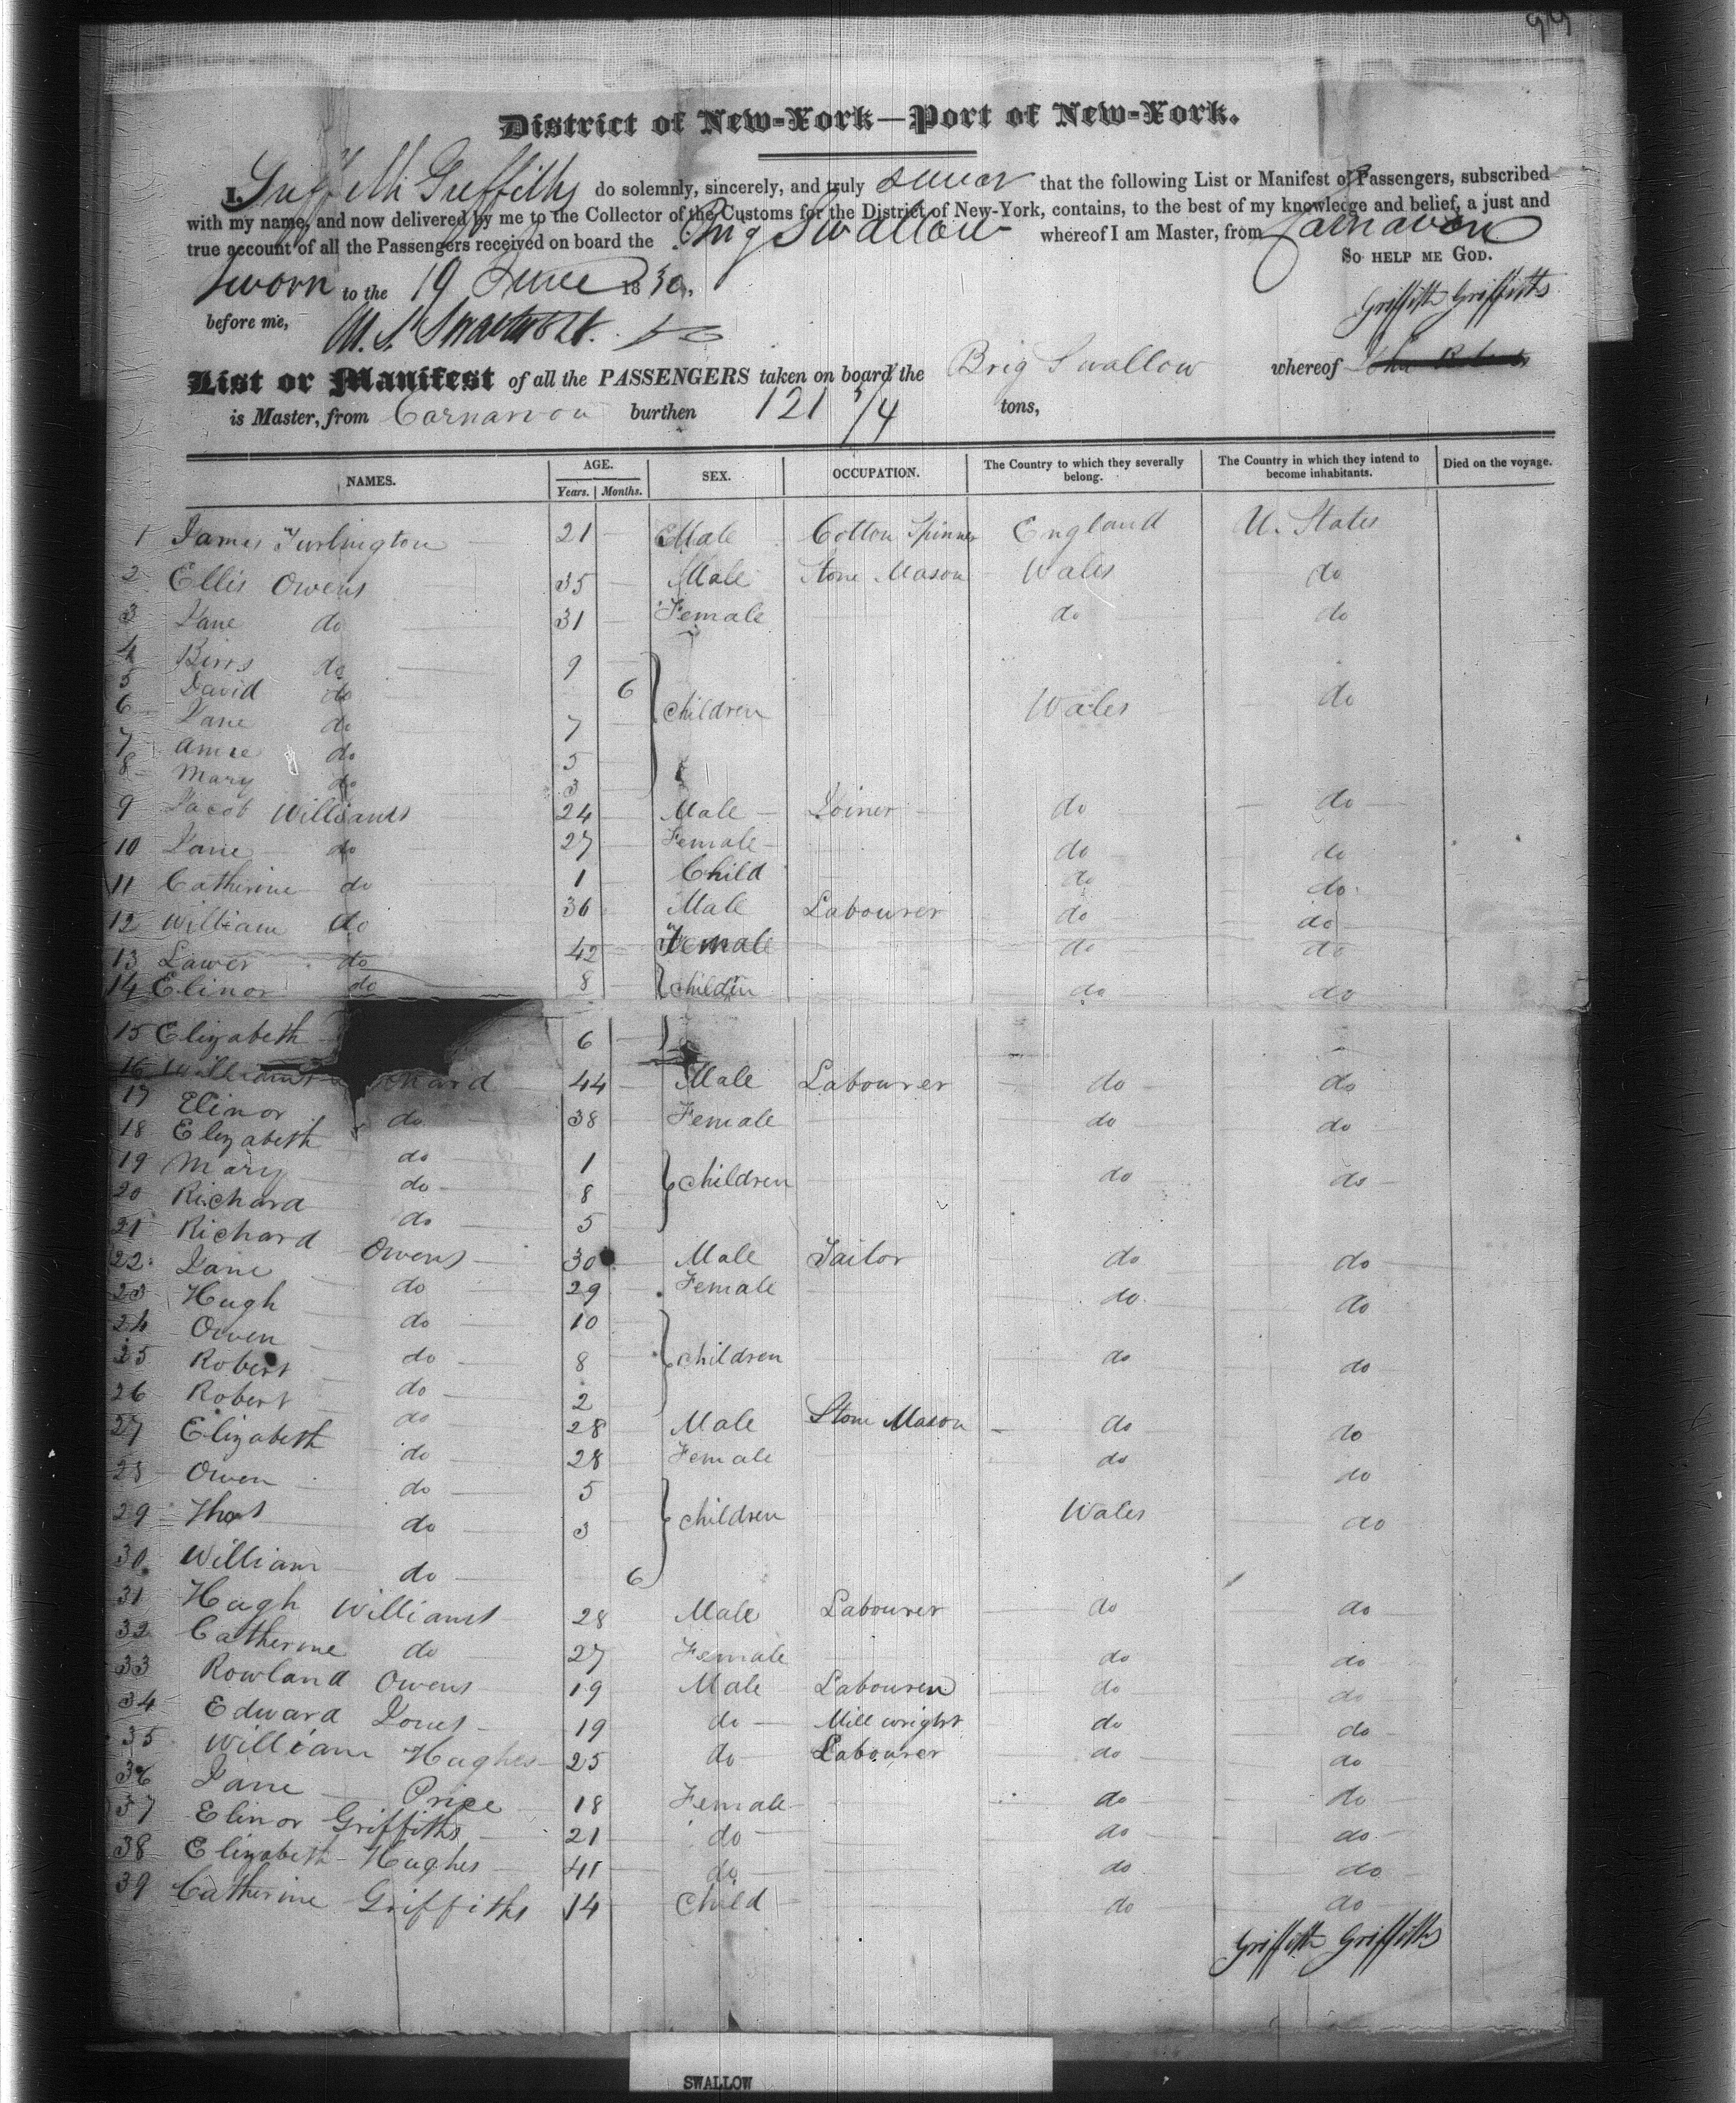 99
District of New-York—Port of New-York.
I, Griffith Griffiths do solemnly, sincerely, and truly swear that the following List or Manifest of Passengers, subscribed
with my name, and now delivered by me to the Collector of the Customs for the District of New-York, contains, to the best of my knowledge and belief, a just and
true account of all the Passengers received on board the Brig Swallow whereof I am Master, from Carnavon
So help me God.
Sworn to the 19 June 1830,
Griffith Griffiths
before me, M. S. Swartwout.
List or Manifest of all the PASSENGERS taken on board the Brig Swallow whereof John Roberts
is Master, from Carnarvon burthen 121 3/4 tons,
NAMES. AGE. Years. Months. SEX. OCCUPATION. The Country to which they severally belong. The Country in which they intend to become inhabitants. Died on the voyage.
1 James Turlington 21 Male Cotton Spinner England U. States
2 Ellis Owens 35 Male Stone Mason Wales do
3 Jane do 31 Female do do
4 do 9
5 David do 6 Children Wales do
6 Jane do 7
7 do 5
8 Mary do 3
9 Jacob Williams 24 Male Joiner do do
10 Jane do 27 Female do do
11 Catherine do 1 Child do do
12 William do 36 Male Labourer do do
13 Lawer do 42 Female do do
14 Elinor do 8 Children do do
15 Elizabeth 6
16 Williams 44 Male Labourer do do
17 Elinor do 38 Female do do
18 Elizabeth do 1
19 Mary do 8 Children do do
20 Richard do 5
21 Richard Owens 30 Male Tailor do do
22 Jane do 29 Female do do
23 Hugh do 10
24 Owen do 8 Children do do
25 Robert do 2
26 Robert do 28 Male Stone Mason do do
27 Elizabeth do 28 Female do do
28 Owen do 5
29 Thos do 3 Children Wales do
30 William do 6
31 Hugh Williams 28 Male Labourer do do
32 Catherine do 27 Female do do
33 Rowland Owens 19 Male Labourer do do
34 Edward Jones 19 do Mill wright do do
35 William Hughes 25 do Labourer do do
36 Jane Price 18 Female do do
37 Elinor Griffiths 21 do do do
38 Elizabeth Hughes 41 do do do
39 Catherine Griffiths 14 Child do do
Griffith Griffiths
SWALLOW